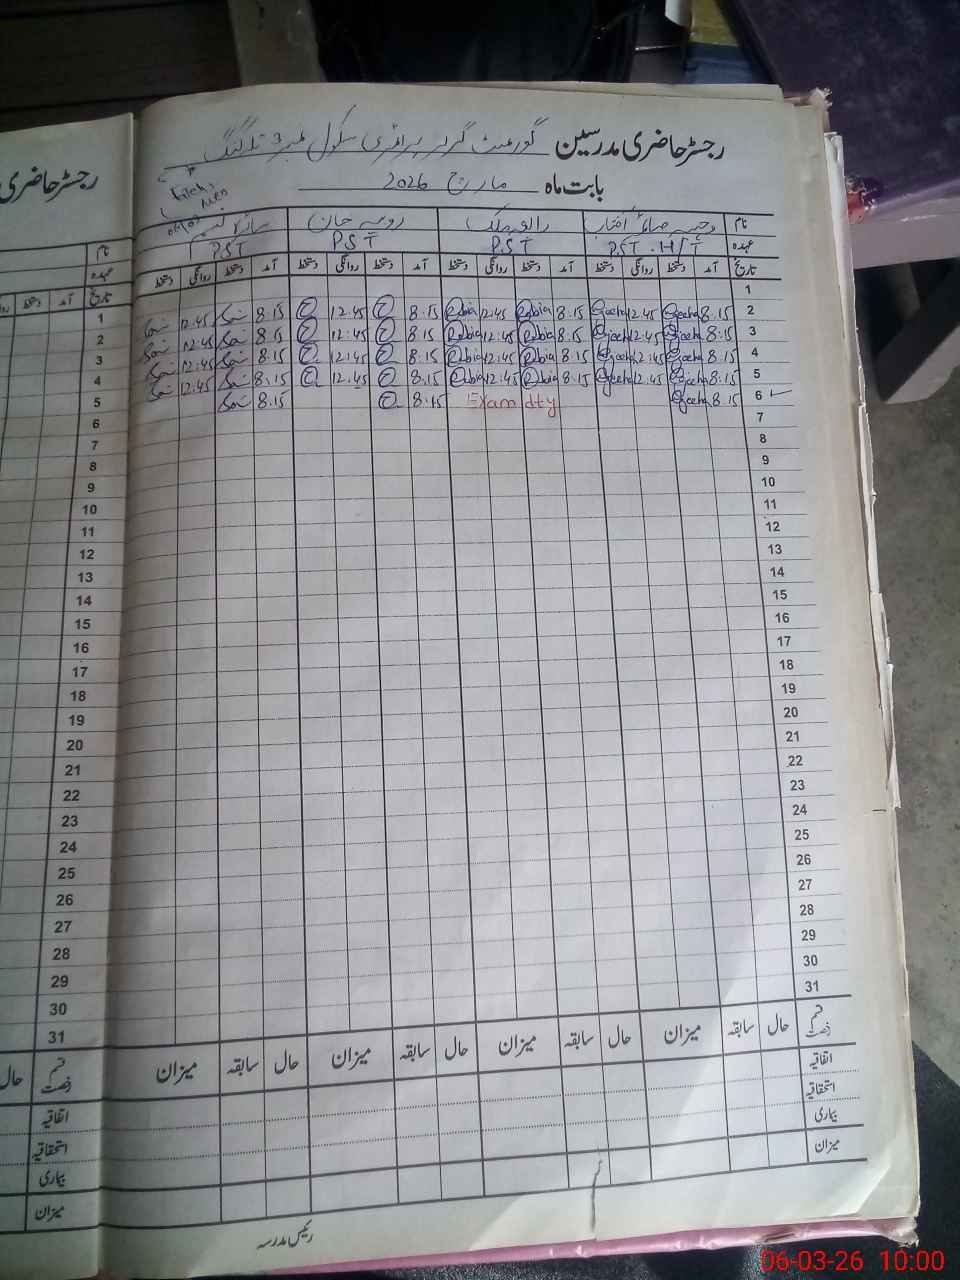 رجسٹر حاضری مدرسین گورنمنٹ گرلز پرائمری سکول نمبر 3 تلہ گنگ
بابت ماہ مارچ 2026
نام رابعہ ملک رومیہ خان
عہدہ PST . H/T PST PST PST
تاریخ آمد دستخط روانگی دستخط آمد دستخط روانگی دستخط آمد دستخط روانگی دستخط آمد دستخط روانگی دستخط
1
2 8:15 12:45 8:15 Rabia 12:45 Rabia 8:15 12:45 8:15 12:45
3 8:15 12:45 8:15 Rabia 12:45 Rabia 8:15 12:45 8:15 12:45
4 8:15 12:45 8:15 Rabia 12:45 Rabia 8:15 12:45 8:15 12:45
5 8:15 12:45 8:15 Rabia 12:45 Rabia 8:15 12:45 8:15 12:45
6 8:15 Exam dty 8:15 8:15
7
8
9
10
11
12
13
14
15
16
17
18
19
20
21
22
23
24
25
26
27
28
29
30
31
قسم رخصت حال سابقہ میزان حال سابقہ میزان حال سابقہ میزان حال سابقہ میزان
اتفاقیہ
استحقاقیہ
بیماری
میزان
رئیس مدرسہ
رجسٹر حاضری
نام
عہدہ
تاریخ آمد دستخط
1
2
3
4
5
6
7
8
9
10
11
12
13
14
15
16
17
18
19
20
21
22
23
24
25
26
27
28
29
30
31
قسم رخصت حال
اتفاقیہ
استحقاقیہ
بیماری
میزان
06-03-26 10:00